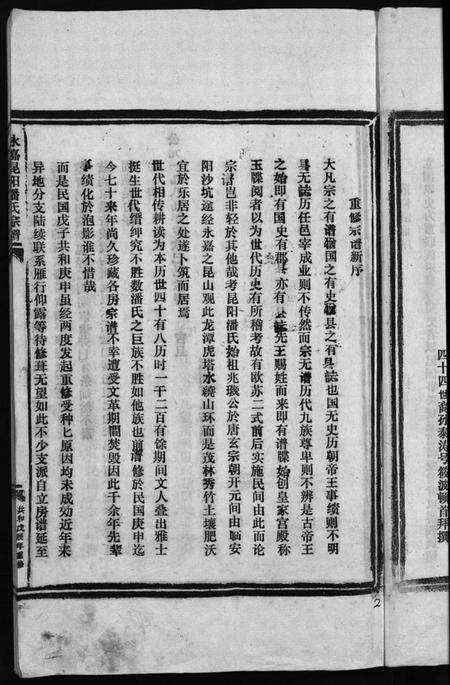 四十四世裔孙泰涛号毅波顿首拜撰
重修宗谱新序
大凡宗之有谱犹国之有史县之有县誌也国无史历朝帝王事绩则不明
县无誌历任邑宰成业则不传然而宗无谱历代九族尊卑则不辨是古帝王
之始即有国史有郡县亦有县誌先王赐姓而来即有谱牒始创皇家宫殿称
玉牒阅者以为世代历史有所稽考故有欧苏二式前后实施民间由此而论
宗谱岂非轻於其他哉考昆阳潘氏始祖兆璣公於唐玄宗朝开元间由临安
阳沙坑途经永嘉之昆山观此龙潭虎塔水繞山环而是茂林秀竹土壤肥沃
宜於乐居之处遂卜筑而居焉
世代相传耕读为本历世四十有八历时一千二百有馀期间文人叠出雅士
挺生世代缙绅究不胜数潘氏之巨族不胜如他族也前谱修於民国庚申迄
今七十来年尚久珍藏各房宗谱不幸遭受文革期間焚毁因此千余年先輩
事绩化於泡影谁不惜哉
而是民国戊子共和庚申虽经两度发起重修受种匕原因均未成効近年来
异地分支陆续联系雁行仰露等待修葺无望如此不少支派自立房谱延至
永嘉昆阳潘氏宗谱
共和戊辰年重修
2